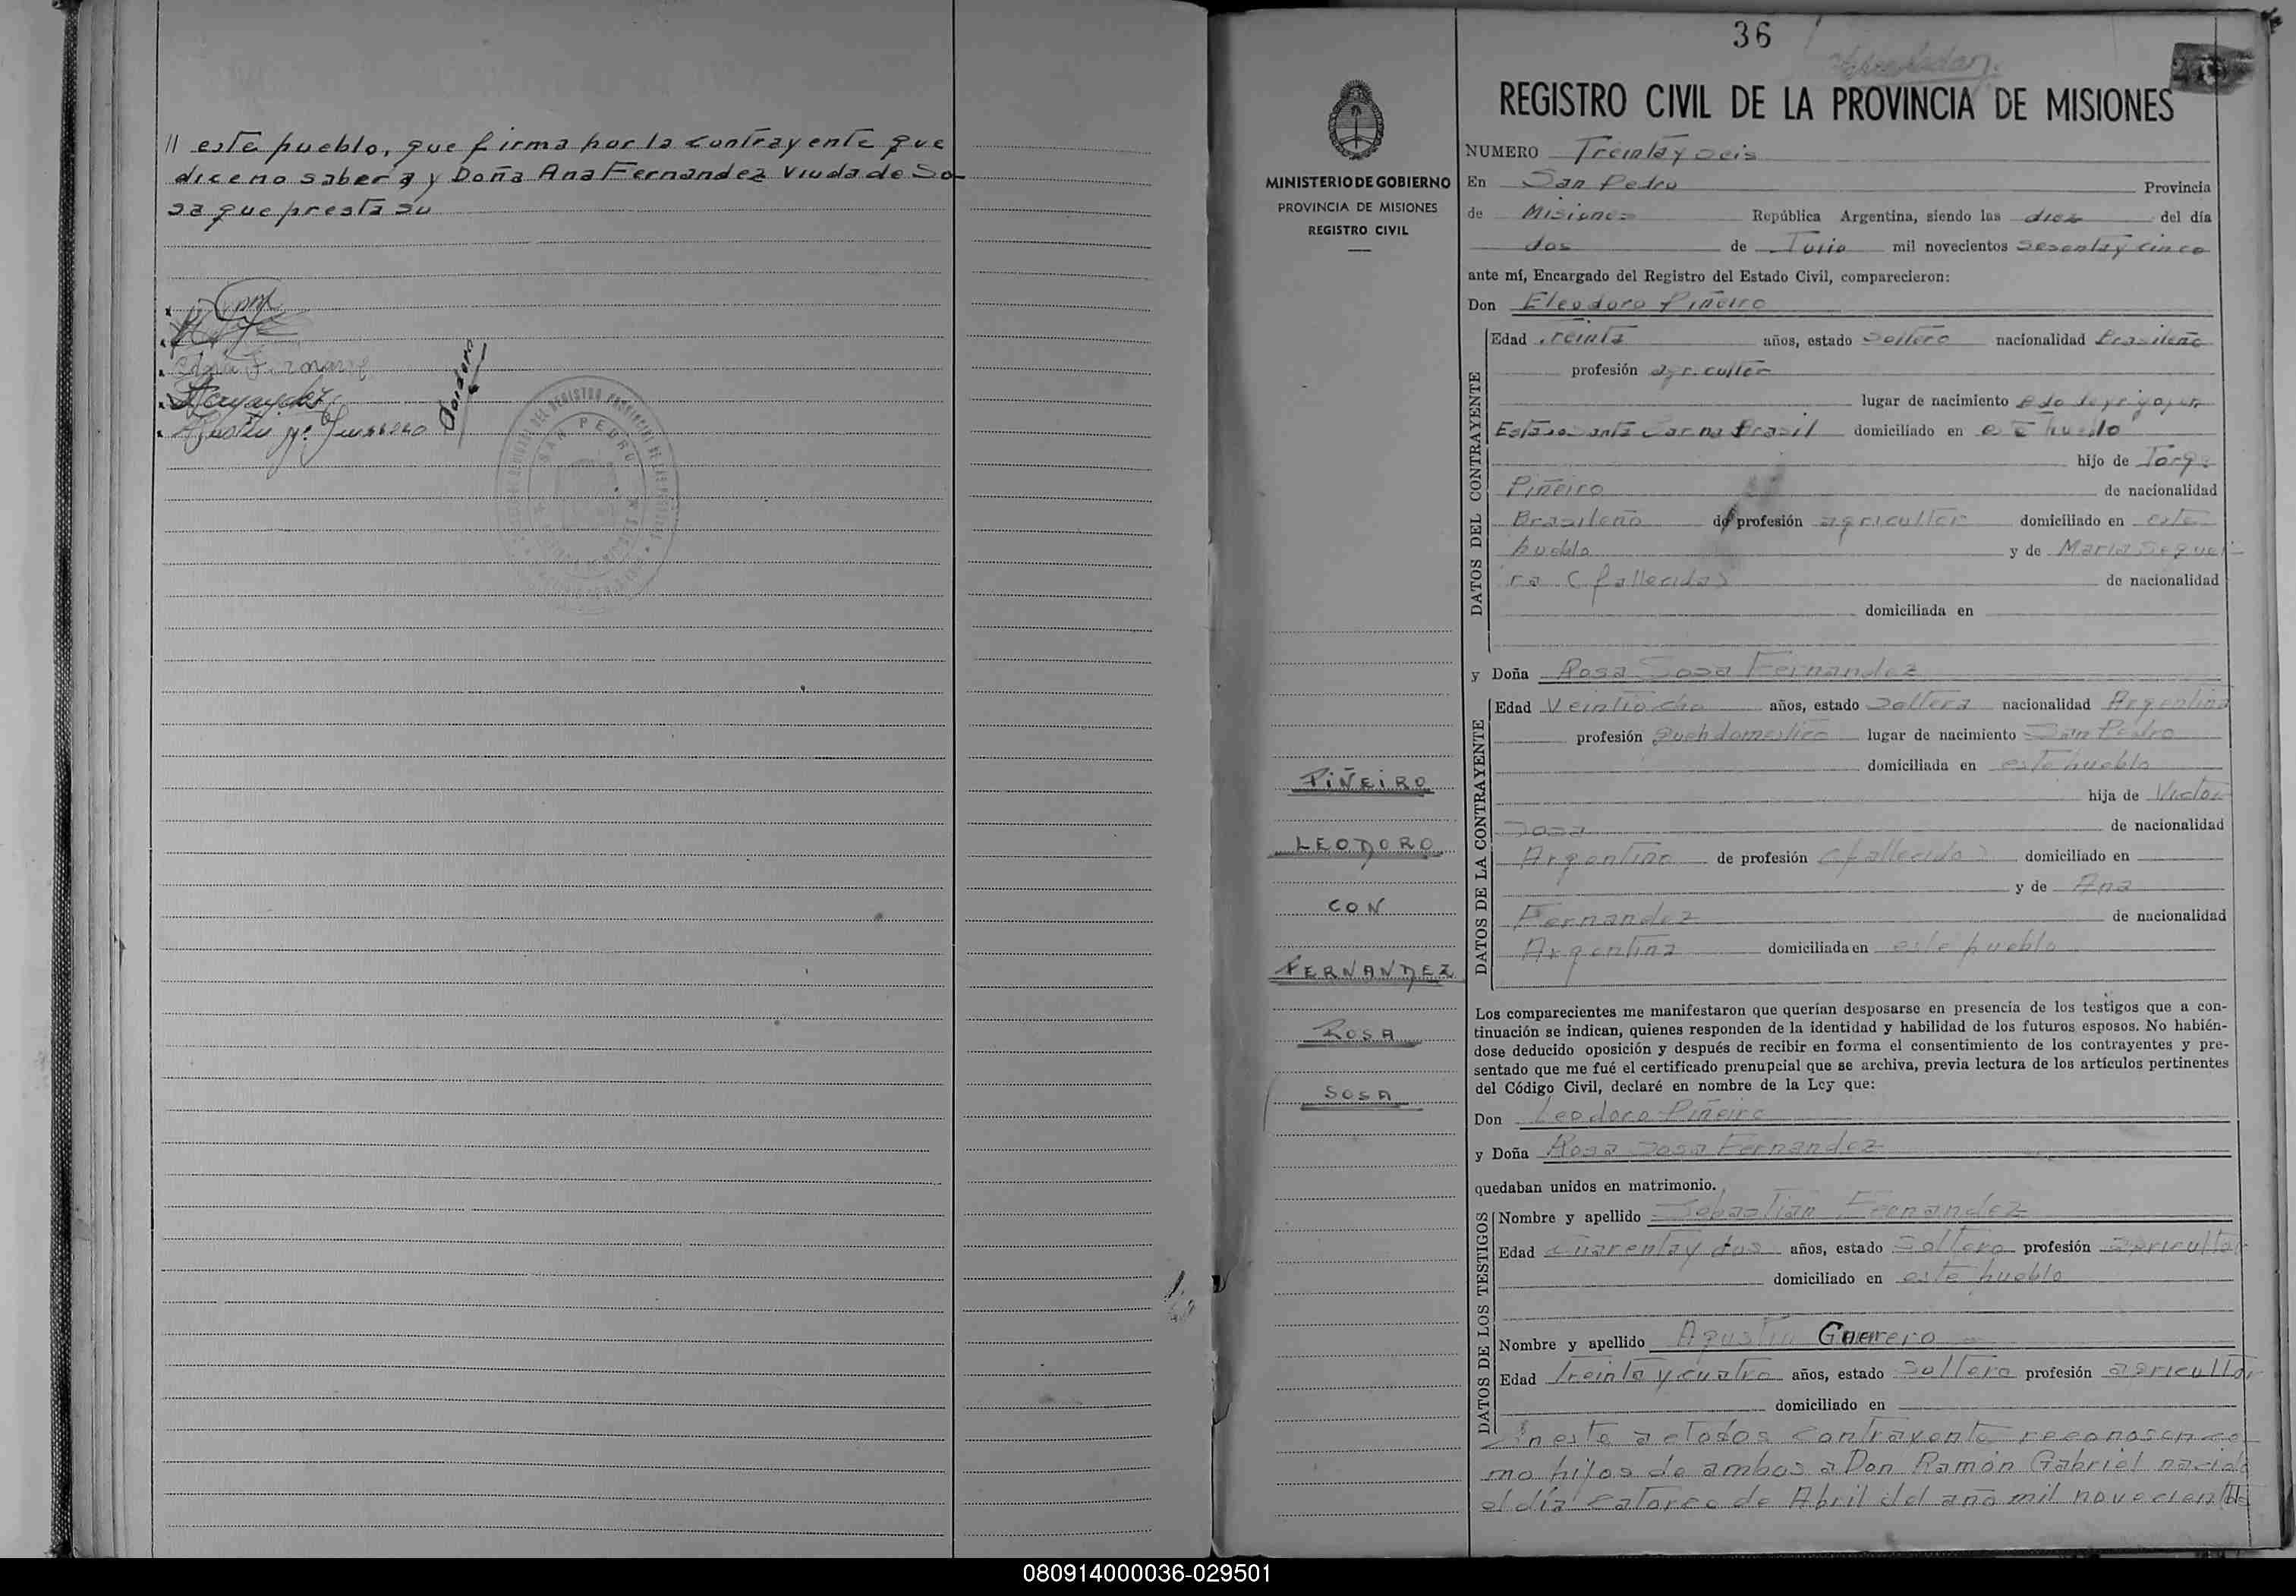 // este pueblo, que firma por la contrayente que
dice no saber y Doña Ana Fernandez Viuda de So-
sa que presta su
Agustín Guerrero
SAN PEDRO
36
REGISTRO CIVIL DE LA PROVINCIA DE MISIONES
MINISTERIO DE GOBIERNO
PROVINCIA DE MISIONES
REGISTRO CIVIL
PIÑEIRO
LEODORO
CON
FERNANDEZ
ROSA
SOSA
NUMERO Treinta y seis
En San Pedro Provincia
de Misiones República Argentina, siendo las diez del día
dos de Julio mil novecientos sesenta y cinco
ante mí, Encargado del Registro del Estado Civil, comparecieron:
Don Eleodoro Piñeiro
DATOS DEL CONTRAYENTE
Edad treinta años, estado soltero nacionalidad Brasileño
profesión agricultor
lugar de nacimiento
Estado Santa Brasil domiciliado en este pueblo
hijo de Jorge
Piñeiro de nacionalidad
Brasileño de profesión agricultor domiciliado en este
pueblo y de Maria Sequei-
ra (fallecida) de nacionalidad
domiciliada en
y Doña Rosa Sosa Fernandez
DATOS DE LA CONTRAYENTE
Edad Veintiocho años, estado soltera nacionalidad Argentina
profesión lugar de nacimiento San Pedro
domiciliada en este pueblo
hija de Victor
Sosa de nacionalidad
Argentino de profesión (fallecido) domiciliado en
y de Ana
Fernandez de nacionalidad
Argentina domiciliada en este pueblo
Los comparecientes me manifestaron que querían desposarse en presencia de los testigos que a con-
tinuación se indican, quienes responden de la identidad y habilidad de los futuros esposos. No habién-
dose deducido oposición y después de recibir en forma el consentimiento de los contrayentes y pre-
sentado que me fué el certificado prenupcial que se archiva, previa lectura de los artículos pertinentes
del Código Civil, declaré en nombre de la Ley que:
Don Leodoro Piñeiro
y Doña Rosa Sosa Fernandez
quedaban unidos en matrimonio.
DATOS DE LOS TESTIGOS
Nombre y apellido Sebastian Fernandez
Edad cuarenta y dos años, estado soltero profesión agricultor
domiciliado en este pueblo
Nombre y apellido Agustin Guerrero
Edad treinta y cuatro años, estado soltero profesión agricultor
domiciliado en
En este acto los contrayente reconosen co-
mo hijos de ambos a Don Ramón Gabriel nacido
el día catorce de Abril del año mil novecientos
080914000036-029501